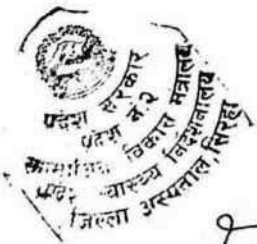 प्रदेश सरकार
प्रदेश नं.२
सामाजिक विकास मंत्रालय
स्वास्थ्य निर्देशनालय
जिल्ला अस्पताल, सिरहा